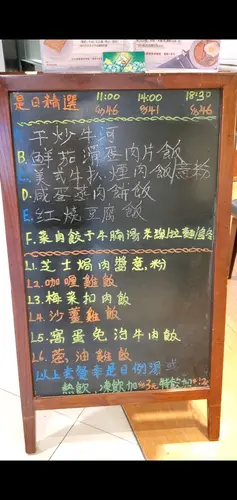 是日精選 11:00 14:00 18:30
$46 $41 $46
干炒牛河
B.鮮茄滑蛋肉片飯
美式牛扒煙肉飯/意粉
D.咸蛋蒸肉餅飯
E.紅燒豆腐飯
F.菜肉餃子牛腩湯米線/拉麵
L1.芝士焗肉醬意粉
L2.咖喱雞飯
L3.梅菜扣肉飯
L4.沙薑雞飯
L5.窩蛋免治牛肉飯
L6.蔥油雞飯
以上套餐奉是日例湯或
熱飲,凍飲加$3元 特飲加